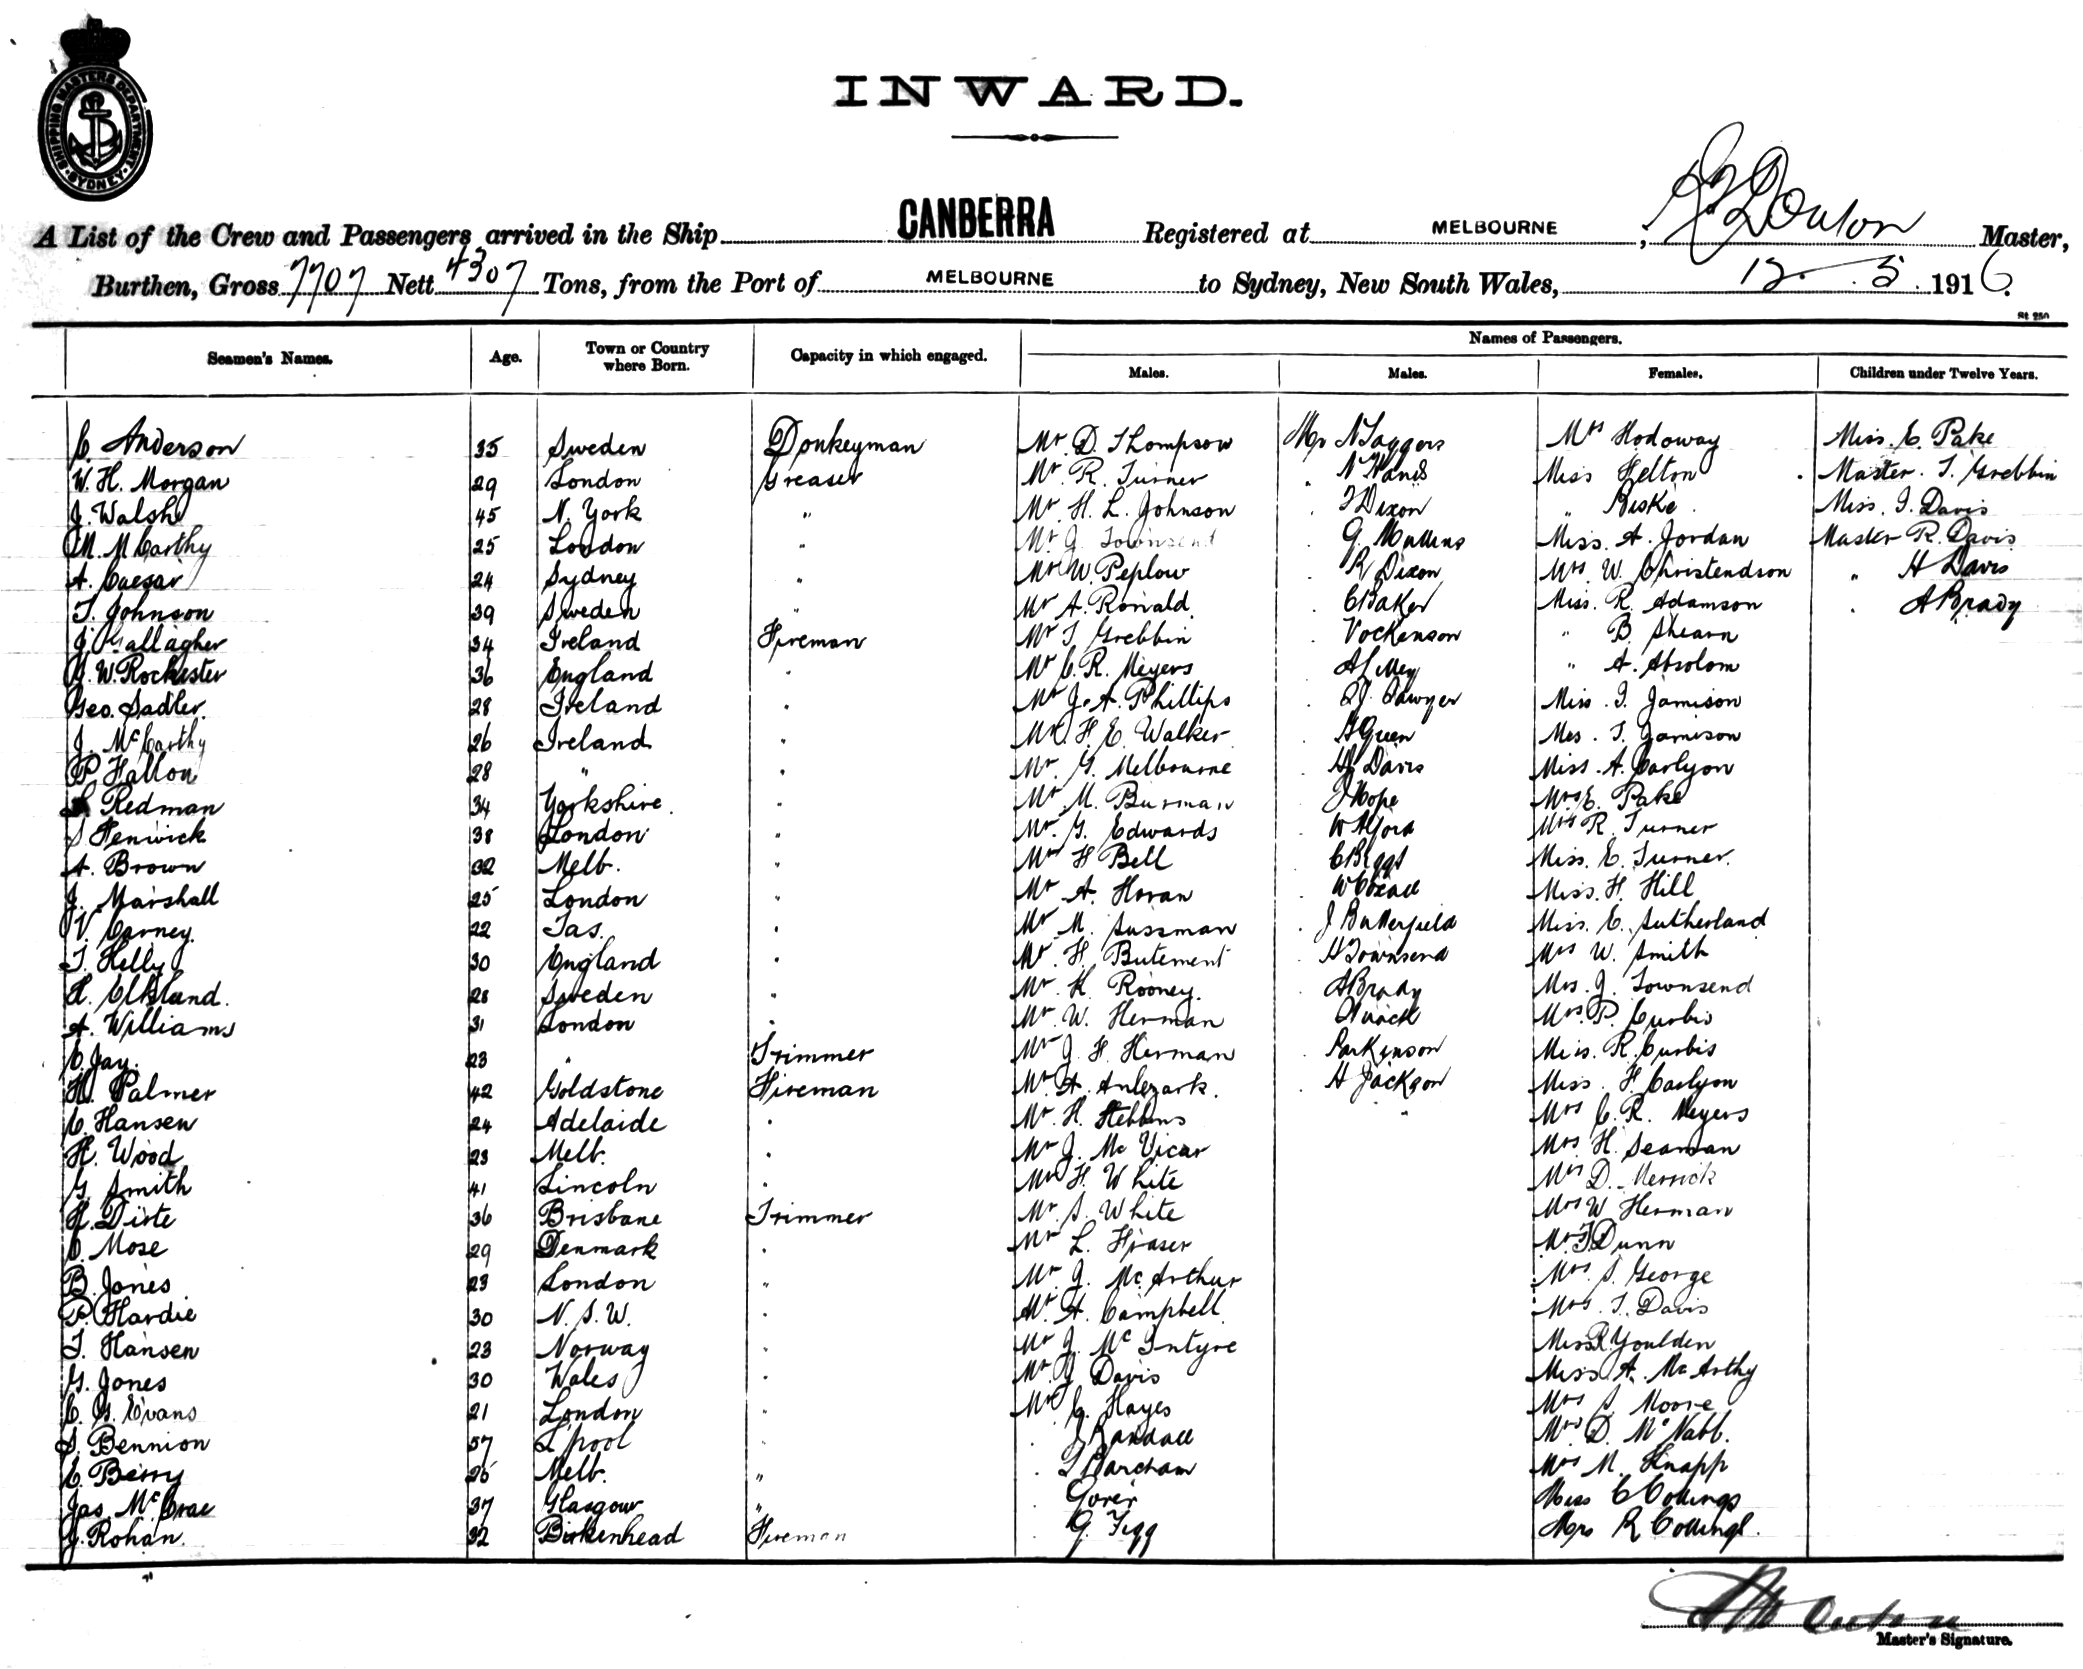 SHIPPING MASTERS DEPARTMENT. SYDNEY.
INWARD.
A List of the Crew and Passengers arrived in the Ship CANBERRA Registered at MELBOURNE, Master,
Burthen, Gross 7707 Nett 4307 Tons, from the Port of MELBOURNE to Sydney, New South Wales, 12. 5. 1916.
St 250
Names of Passengers.
Seamen's Names. Age. Town or Country where Born. Capacity in which engaged. Males. Males. Females. Children under Twelve Years.
C. Anderson 35 Sweden Donkeyman Mr. D. Thompson Mr N Jaggers Mrs Hodoway Miss. E. Pake
W. H. Morgan 29 London Greaser Mr. R. Turner . N Miss Felton Master. T. Grebbin
J. Walsh 45 N. York " Mr. H. L. Johnson . T Dixon " Riske Miss. I. Davis
M. McCarthy 25 London " Mr J Townsend . G. Mullins Miss. A. Jordan Master R. Davis
A. Caesar 24 Sydney " Mr W. Peplow . R Dixon Mrs. W. Christendson " H Davis
T. Johnson 39 Sweden " Mr A. Ronald . C Baker Miss. R. Adamson . A Brady
J. Gallagher 34 Ireland Fireman Mr T Grebbin . Vockenson " B. Shearn
J. W. Rochester 36 England " Mr C. R. Meyers . " A. Absolom
Geo. Sadler. 28 Ireland " Mr J. A. Phillips . Sawyer Miss. I. Jamison
J. McCarthy 26 Ireland " Mr. H. E. Walker . Green Mrs. T. Jamison
P. Fallon 28 " " Mr. G. Melbourne . Davis Miss. A. Carlyon
Redman 34 Yorkshire. " Mr. M. Burman . J Hope Mrs E. Pake
S Fenwick 38 London " Mr. G. Edwards . W Alford Mrs R. Turner
A. Brown 32 Melb. " Mr H Bell . C Biggs Miss. E. Turner.
J. Marshall 25 London " Mr A. Horan . W Miss. H. Hill
V. Carney. 22 Tas. " Mr. M. Sussman . J Butterfield Miss. E. Sutherland
T. Kelly 30 England " Mr. H. Butement . H Townsend Mrs W. Smith
H. Elkland. 28 Sweden " Mr. K. Rooney. . A Brady Mrs. J. Townsend
A. Williams 31 London " Mr. W. Herman . Mrs. P. Curbis
C. Jay. 23 " Trimmer Mr J. H. Herman . Parkinson Miss. R. Curbis
H. Palmer 42 Goldstone Fireman Mr A. Anlezark. . H Jackson Miss. F. Carlyon
C. Hansen 24 Adelaide " Mr. H. Stebbins " Mrs C. R. Meyers
H. Wood 23 Melb. " Mr J. Mc Vicar Mrs. H. Seaman
G. Smith 41 Lincoln " Mr H. White Mrs D. Merrick
H. Diste 36 Brisbane Trimmer Mr. S. White Mrs W Herman
C. Mose 29 Denmark " Mr L. Fraser Mrs F Dunn
B. Jones 23 London " Mr. J. Mc. Arthur Mrs. S. George
P. Hardie 30 N. S. W. " Mr. A. Campbell Mrs. T. Davis
T. Hansen 23 Norway " Mr J. Mc Intyre Miss R. Youlden
G. Jones 30 Wales " Mr. J Davis Miss A. Mc Arthy
C. G. Evans 21 London " Mr C. Hayes Mrs S Moore
S. Bennion 57 L'pool " . J Randall Mrs D. McNabb.
C. Berry 25 Melb. " . Barcham Mrs M. Knapp
Jas. McCrae 37 Glasgow " . Gorer Miss C Collings
J. Rohan. 32 Birkenhead Fireman . G. Figg Mrs R Collings.
Master's Signature.